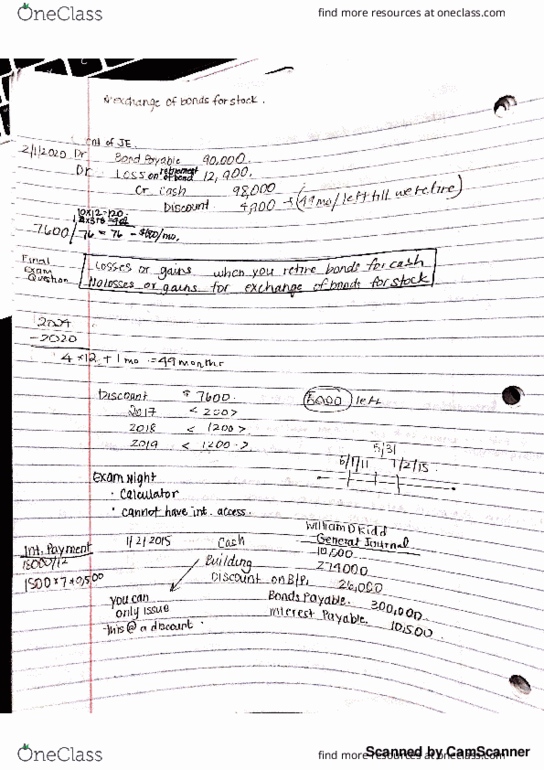 OneClass
find more resources at oneclass.com
exchange of bonds for stock.
Cnt of JE
2/1/2020 Dr Bond Payable 90,000
Dr Loss on retirement of bond 12,900
Cr cash 98,000
Discount 4,900 → (49 mo/left till we retire)
10x12=120
7600/76 = 76 - $100/mo.
Final Exam Question
Losses or gains when you retire bonds for cash
No losses or gains for exchange of bonds for stock
2024
-2020
4 x12 + 1 mo = 49 months
Discount $ 7600 left
2017 < 200>
2018 < 1200 >
2019 < 1200 >
5/31
6/1/11 1/2/15
Exam Night
• Calculator
• cannot have int. access.
William D Kidd
General Journal
Int. Payment
1/2/2015 Cash 10,500
18000/12
Building 274000
1500 x 7 = 10,500
Discount on B/P. 26,000
Bonds Payable. 300,000
Interest Payable. 10,500
you can only issue this @ a discount.
OneClass
find more resources at oneclass.com
Scanned by CamScanner